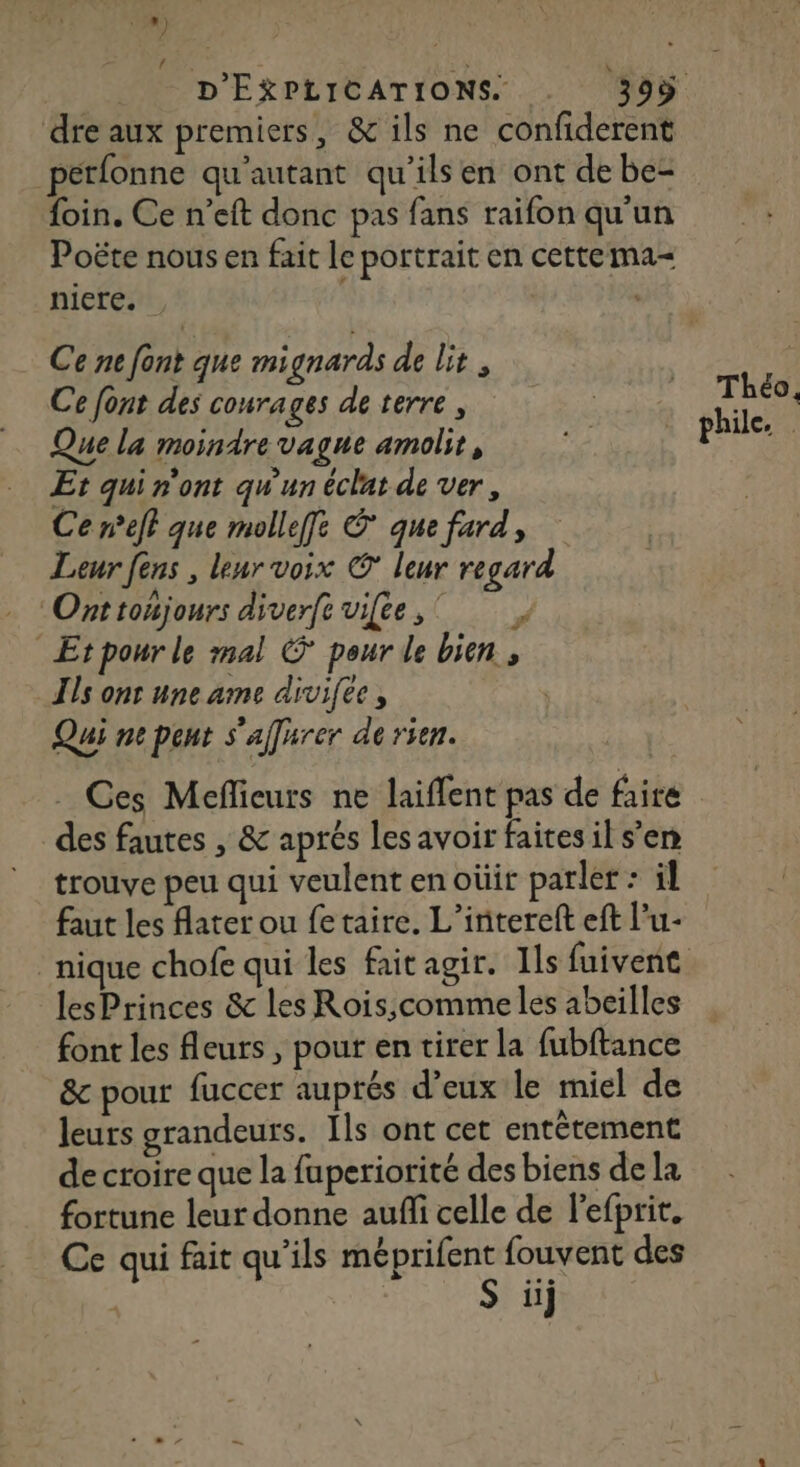 D'EXPLICATIONS. 399
dre aux premiers, & ils ne conſiderent
perſonne qu'autant qu'ils en ont de be-
ſoin. Ce n'eſt donc pas ſans raiſon qu'un
Poëte nous en fait le portrait en cette ma-
niere.
Ce ne ſont que mignards de lit,
Ce ſont des courages de terre,
Que la moindre vague amolit,
Et qui n'ont qu'un éclat de ver,
Ce n'eſt que molleſſe & que fard,
Leur ſens, leur voix & leur regard
Ont toûjours diverſe viſée,
Et pour le mal & pour le bien,
Ils ont une ame diviſée,
Qui ne peut s'aſſurer de rien.
Théo-
phile.
Ces Meſſieurs ne laiſſent pas de faire
des fautes, & aprés les avoir faites il s'en
trouve peu qui veulent en oüir parler : il
faut les flater ou ſe taire. L'intereſt eſt l'u-
nique choſe qui les fait agir. Ils ſuivent
les Princes & les Rois, comme les abeilles
font les fleurs, pour en tirer la ſubſtance
& pour ſuccer auprés d'eux le miel de
leurs grandeurs. Ils ont cet entêtement
de croire que la ſuperiorité des biens de la
fortune leur donne auſſi celle de l'eſprit.
Ce qui fait qu'ils mépriſent ſouvent des
S iij